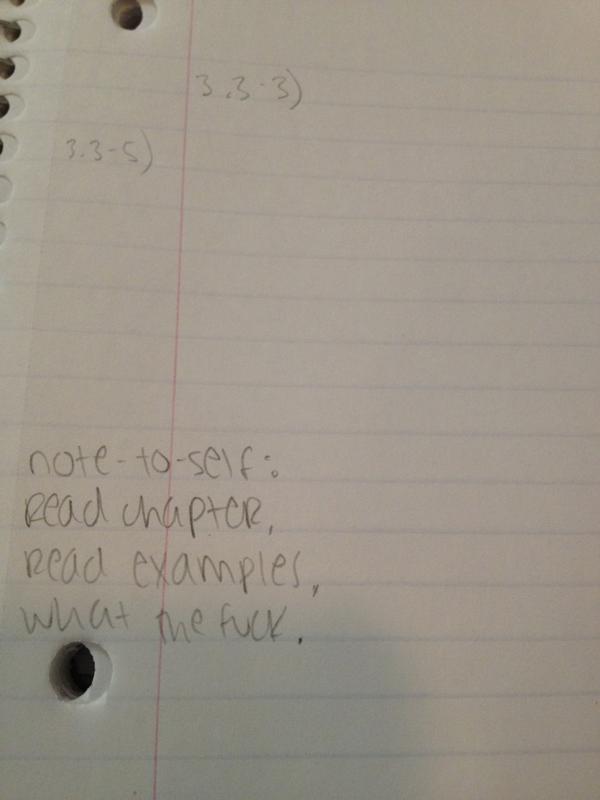 3.3-3)
3.3-5)
note-to-self:
Read chapter,
Read examples,
what the fuck.